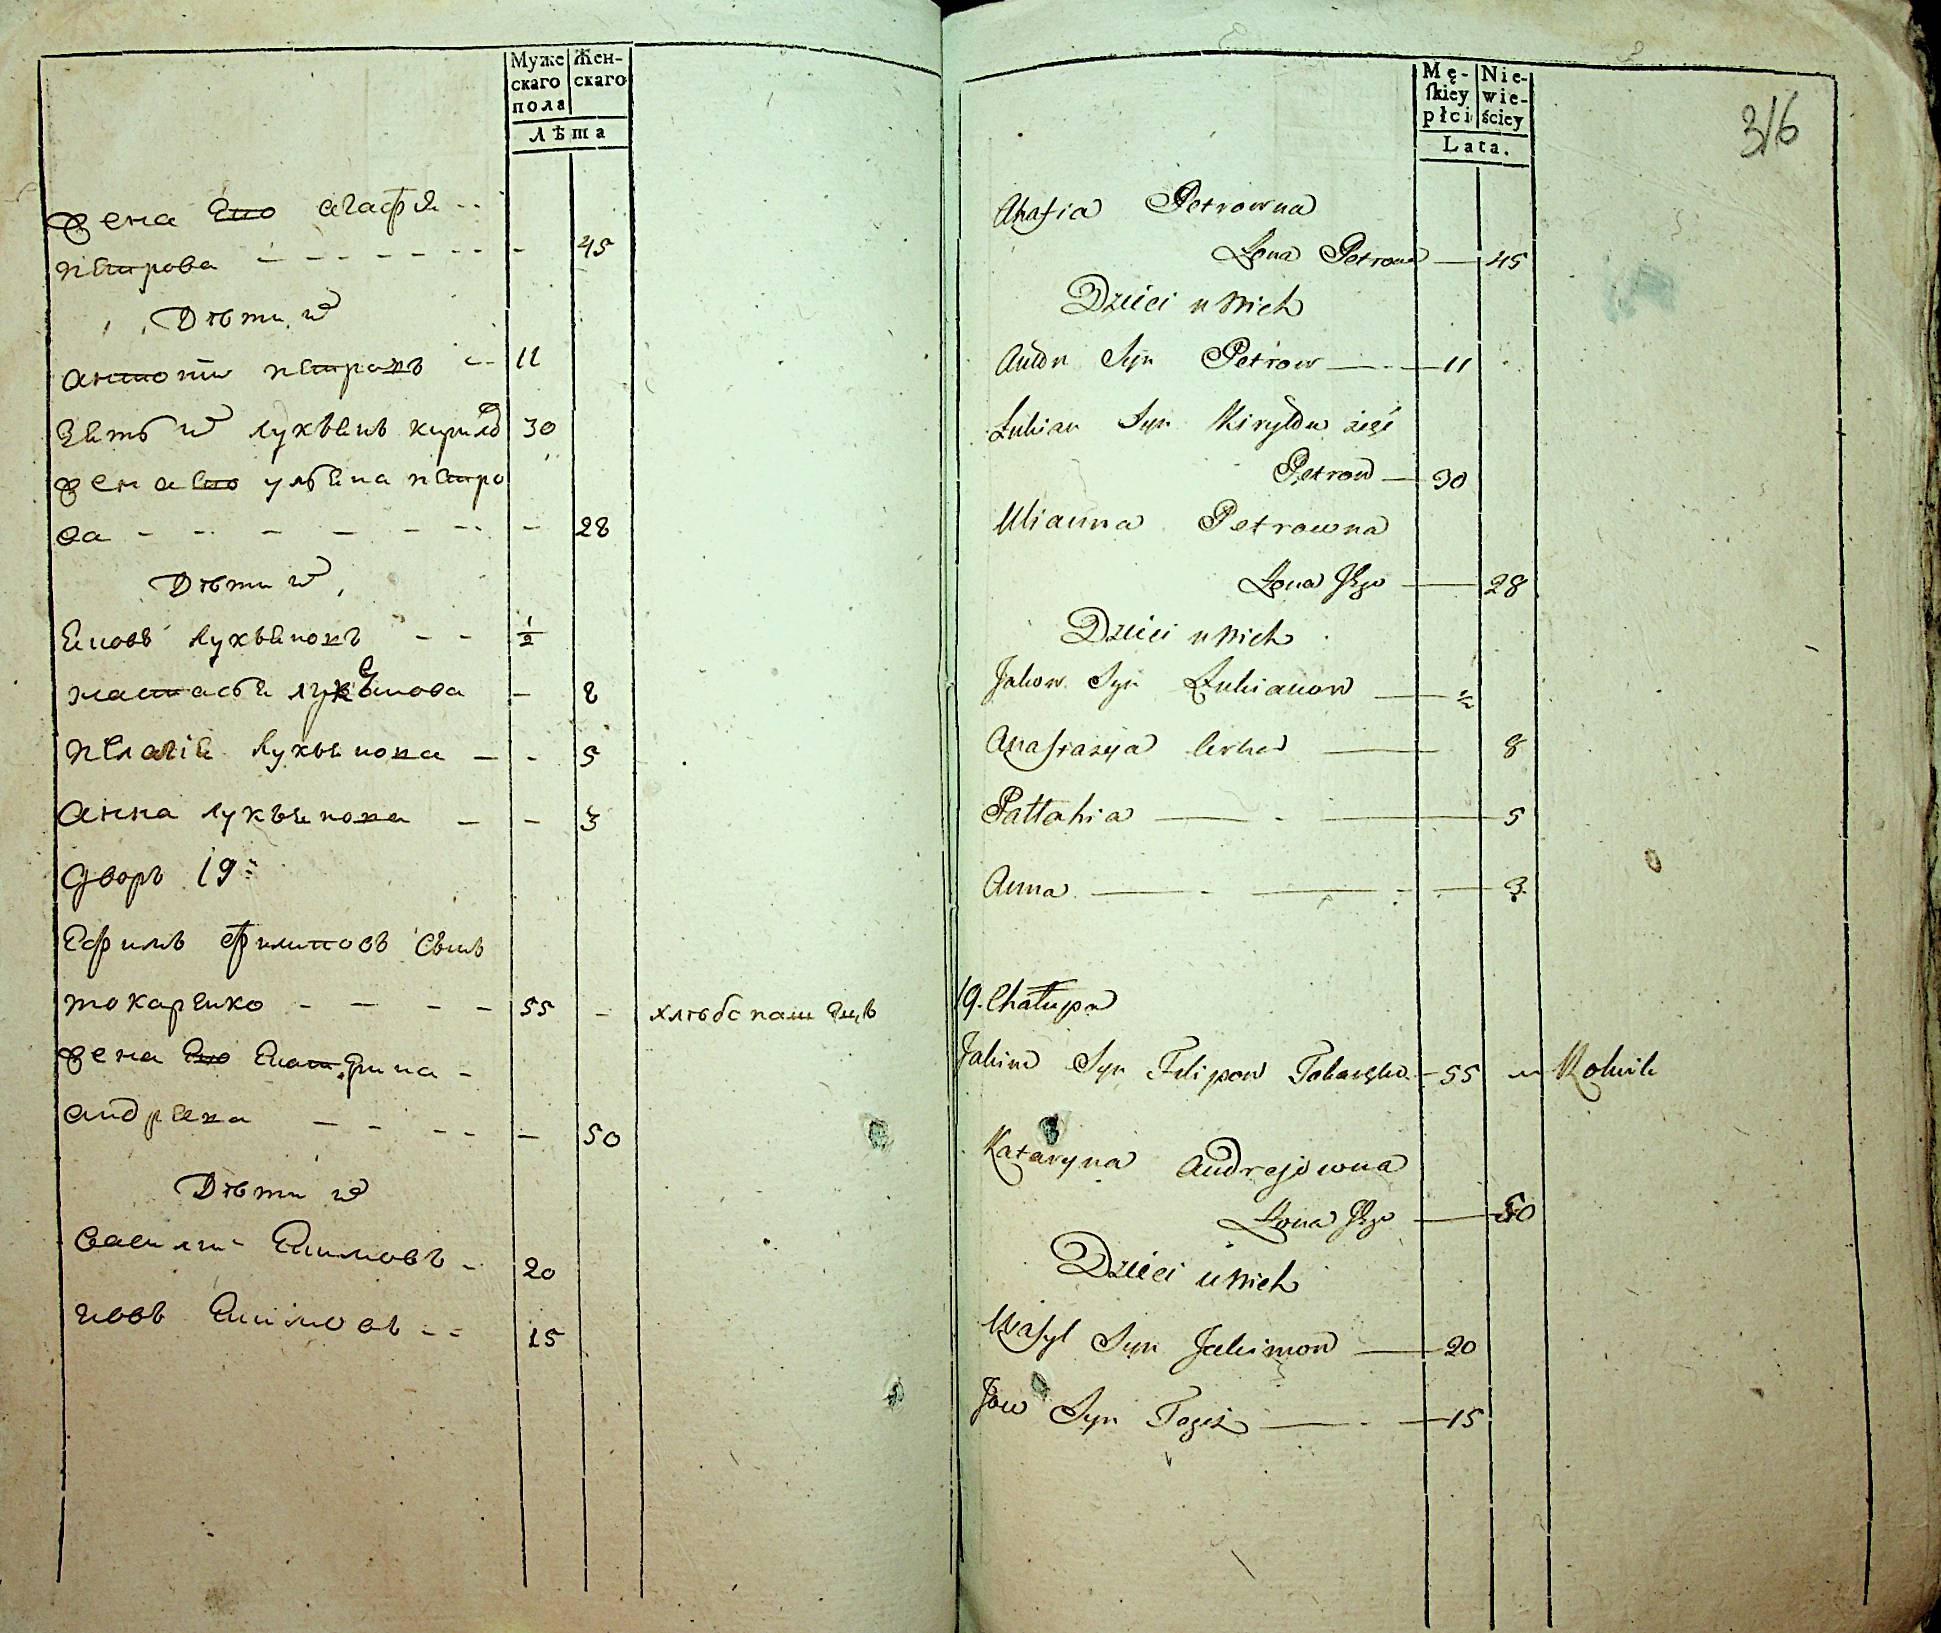 Муже
скаго
пола
Жен-
скаго
Лѣта
жена Его агафѣя
петрова 45
Дѣти их
антонъ петровъ 11
Зять их лукъянъ кирило 30
жена Его ульена петро
ва 28
Дѣти их
Еиовъ лукъеновъ 1/2
настасья лукьенова 8
пелагіе лукьенова 5
анна лукъенова 3
дворъ 19й
Ефимъ филиповъ сынъ
токаренко 55 хлѣбопашецъ
жена Его Екатерина
андреева 50
Дѣти их
василий Ехимовъ 20
иовъ Ехимовъ 15
316
Mę-
ſkiey
płci
Nie-
wie-
ściey
Lata.
Ahafia Petrowna
Żona Petrowa 45
Dzieci u Nich
Anton Syn Petrow 11
Łukian Syn Kiryłow zięć
Petrow 30
Ulianna Petrowna
Żona Jego 28
Dzieci u Nich
Jakow Syn Łukianow ½
Anastazya Corka 8
Pałłahia 5
Anna 3
19. Chałupa
Jakim Syn Filipow Tokarenko 55 Rolnik
Kataryna Andrejowna
Żona Jego 50
Dzieci u Nich
Wasyl Syn Jakimow 20
Jow Syn Tegoż 15